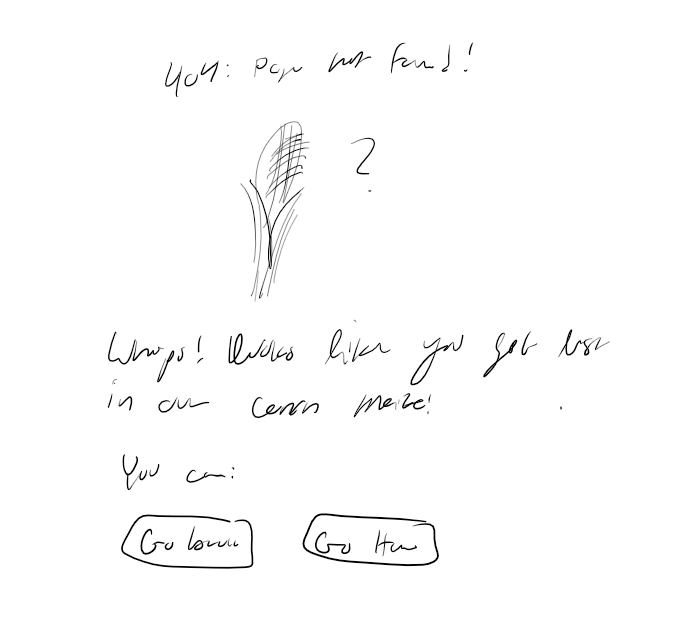 404: Page not found!
?
Whoops! Looks like you got lost
in our corn maize!
You can:
Go back
Go Home